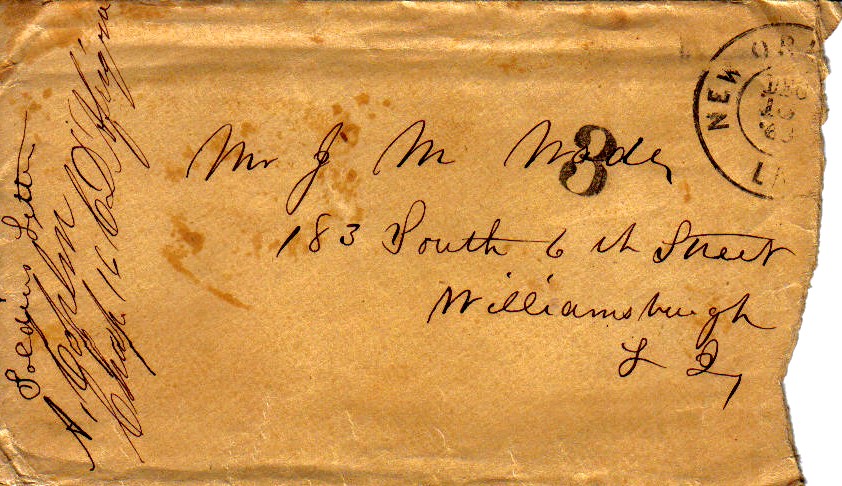 Soldiers Letter
A. Joslin
Chap 16
NEW OR
DEC
10
LA
3
Mr J M Wade,
183 South 6 th Street
Williamsburgh
L I,